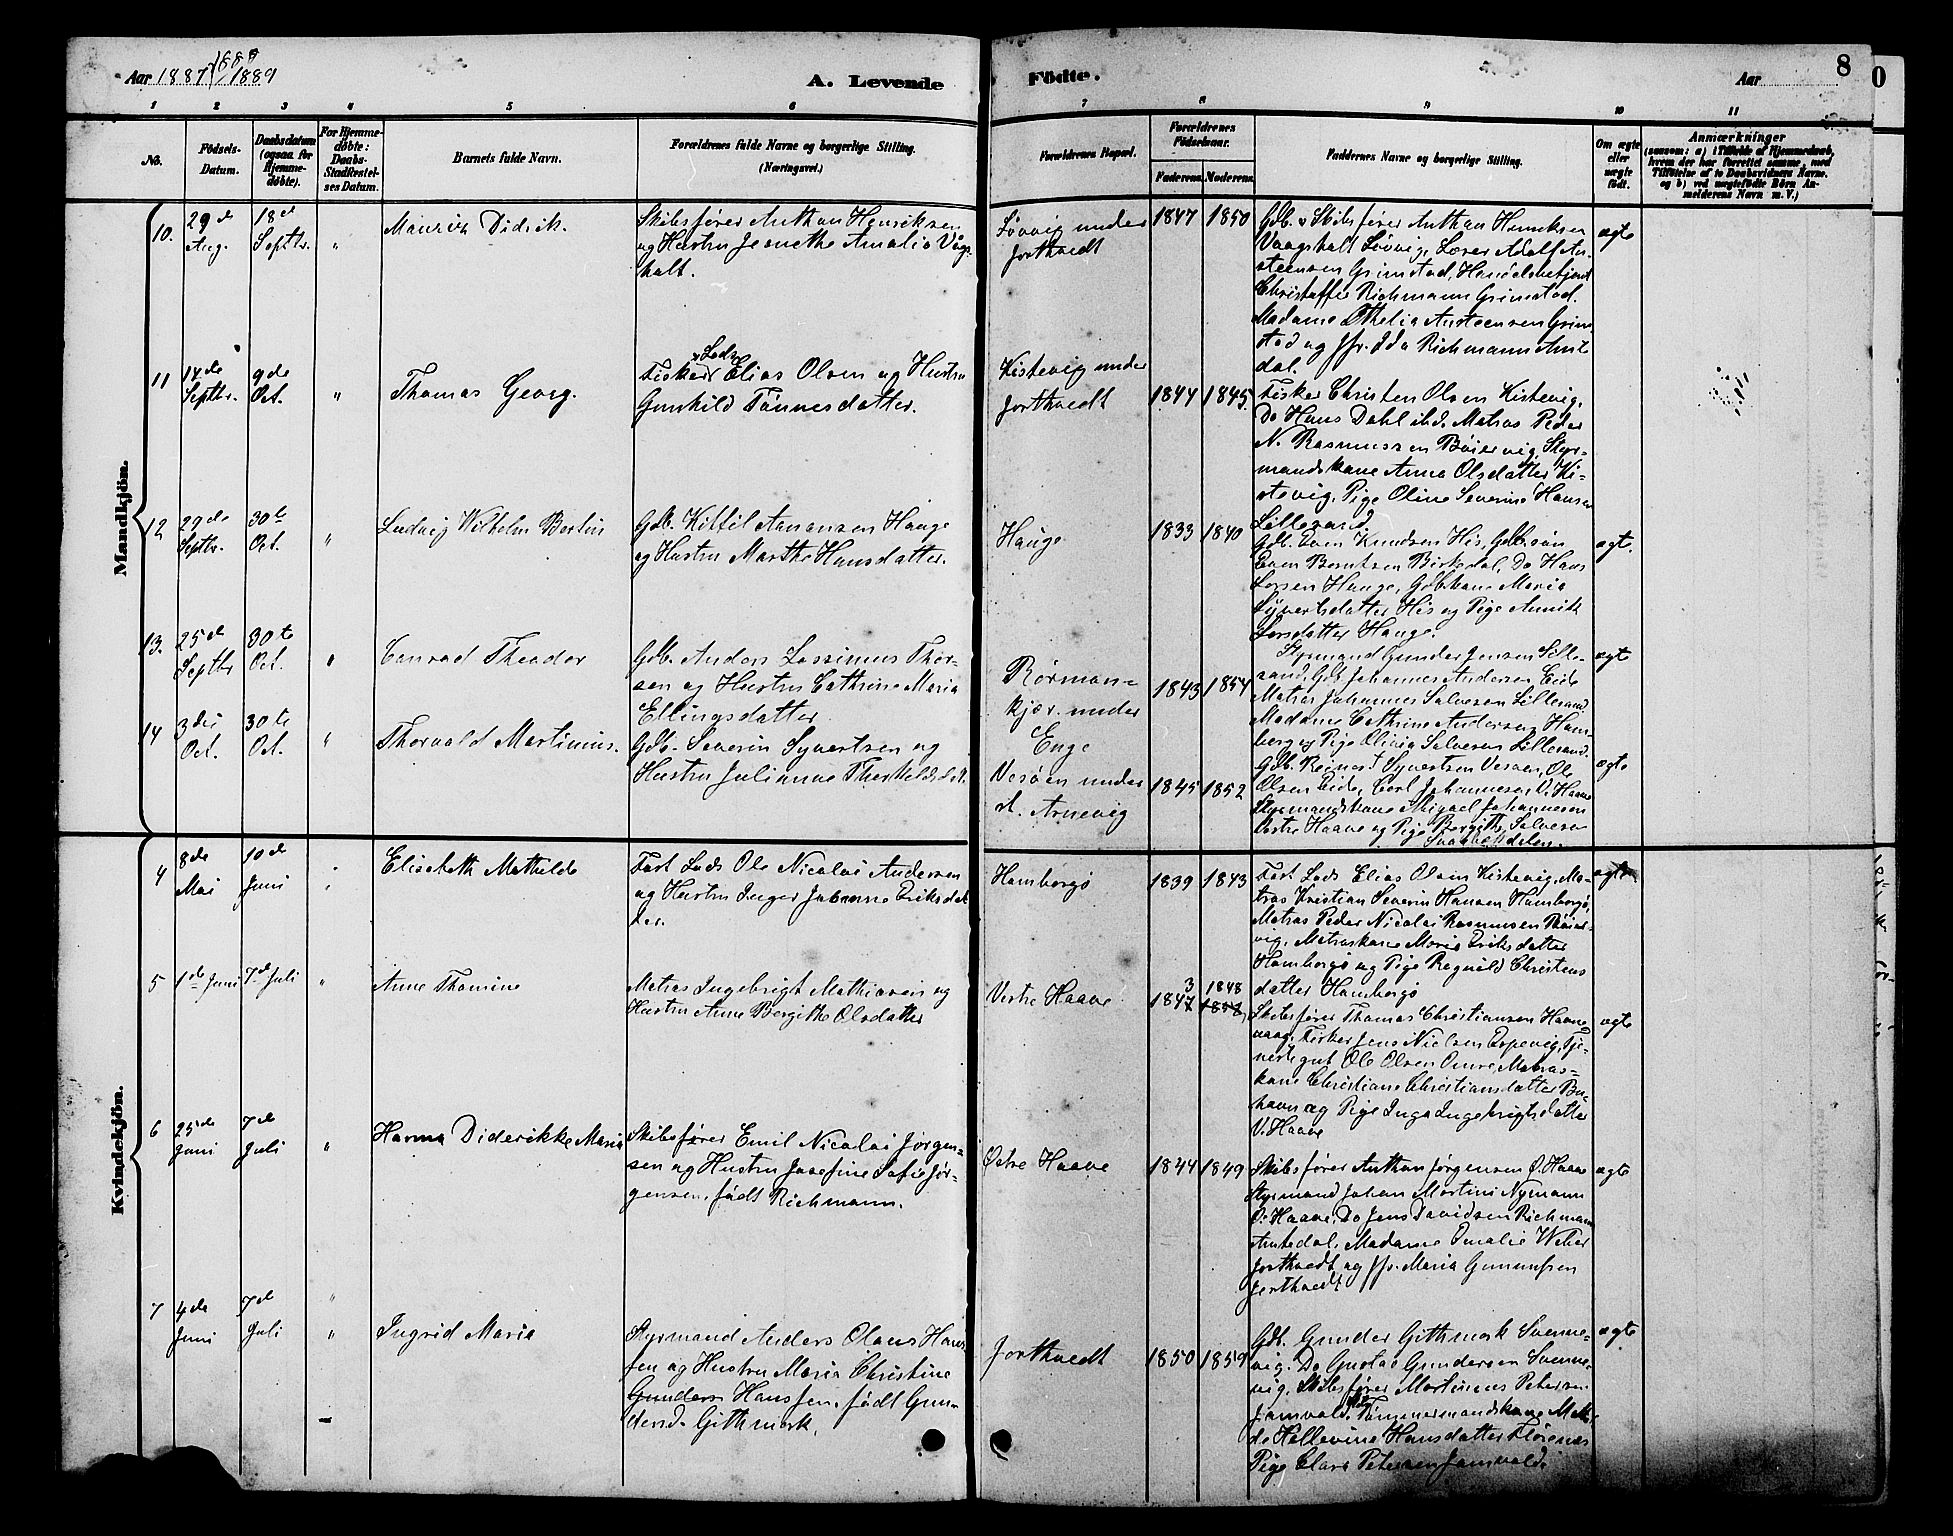 Aar 1887/1888/1889
A. Levende
Födte.
Aar
8
0
1 2 3 4 5 6 7 8 9 10 11
No.
Födsels-
Datum.
Daabsdatum
(ogsaa for
Hjemme-
döbte).
For Hjemme-
döbte:
Daabs-
Stadfæstel-
ses Datum.
Barnets fulde Navn.
Forældrenes fulde Navne og borgerlige Stilling.
(Næringsvei.)
Forældrenes Bopæl.
Forældrenes
Födselsaar.
Faderens. Moderens.
Faddernes Navne og borgerlige Stilling.
Om ægte
eller
uægte
födt.
Anmærkninger
(saasom: a) i Tilfælde af Hjemmedaab,
hvem der har forrettet samme, med
Tilföielse af to Daabsvidners Navne.
og b) ved uægtefödte Börn An-
melderens Navn m. V.)
Mandkjön.
10.
29de
Aug.
18de
Septbr.
"
Mauritz Didrik.
Skibsfører Anthon Henriksen
og Hustru Jeanethe Amalia Våg-
halt.
Løvvig under
Jorthvedt
1847 1850
Gdb. & Skibsfører Anthon Henriksen
Vaagshalt Løvvig, Lærer Adolf Au-
steensen Grimstad, Handelsbetjent
Christoffer Richmann Grimstad.
Madame Othelia Austeensen Grim
stad og Jfr. Ida Richmann Amte
dal.
ægte
11
14de
Septbr.
9de
Oct.
"
Thomas Georg.
Fisker & Lods Elias Olsen og Hustru
Gunhild Tönnesdatter.
Kistevig under
Jorthvedt
1844 1845.
Fisker Christen Olsen Kistevig,
Do Hans Dahl ibd. Matros Peder
N. Rasmussen Böiervig, Styr-
mandskone Anna Olsdatter Ki-
stevig, Pige Oline Severine Hansen
Lillesand.
12
29de
Septbr.
30te
Oct.
"
Ludvig Vilhelm Bertin
Gdb. Kittil Aanansen Hauge
og Hustru Marthe Hansdatter.
Hauge
1833 1840
Gdb. Even Knudsen His, Gdb.søn
Even Berntsen Birkedal, Do Hans
Larsen Hauge, Gdbkone Maria
Syvertsdatter His og Pige Annik
Larsdatter Hauge.
ægte.
13.
25de
Septbr
30te
Oct.
"
Conrad Theodor
Gdb. Anders Lassinius Thor-
sen og Hustru Cathrine Maria
Ellingsdatter
Rørman-
kjær under
Enge
1843 1854
Styrmand Gunder Jensen Lille-
sand, Gdb Johannes Andersen Eide
Matros Johannes Salvesen Lillesand
Madame Cathrine Andersen Ham-
berg og Pige Olivia Salvesen Lillesand.
ægte
14
3die
Oct.
30te
Oct.
"
Thorvald Martinius.
Gdb. Severin Syvertsen og
Hustru Julianne Therkeldsdat.
Vesöen under
d. Arnevig
1845 1852
Gdb. Reinert Syvertsen Vesøen, Ole
Olsen Eide, Carl Johannesen V. Haave
Styrmandskone Migael Johannesen
Vestre Haave og Pige Bergithe Salvesen
ægte
Kvindekjön.
4
8de
Mai
10de
Juni
Elisabeth Mathilde
Fast Lods Ole Nicolai Andersen
og Hustru Inger Johanne Eriksdat
ter.
Hamborgö
1839 1843
Fast Lods Elias Olsen Kistevig, Ma-
tros Kristian Severin Hansen Hamborgö,
Matros Peder Nicolai Rasmussen Böier-
vig, Matroskone Maria Eriksdatter
Hamborgö og Pige Regnild Christens
datter Hamborgö
ægte
5
1de Juni
7de Juli
"
Anne Thomine
Matros Ingebrigt Mathiasen og
Hustru Anne Bergithe Olsdatter
Vestre Haave
3
1847
1848
Skibsfører Thomas Christiansen Haave
vaag, Fisker Jens Nielsen Espevig, Tje-
nestegut Ole Olsen Omre, Matros-
kone Christiane Christiansdatter Bu-
havn og Pige Inga Ingebrigtsdatter
V. Haave
ægte
6
25de
Juni
7de
Juli
"
Hanna Diderikke Maria
Skibsfører Emil Nicolai Jørgen-
sen og Hustru Josefine Sofie Jør-
gensen, født Richmann.
Østre Haave
1844 1849
Skibsfører Anthon Jørgensen Ø. Haave
Styrmand Johan Martini Nymann
Ø. Haave, Do Jens Davidsen Richmann
Amtedal, Madame Emalie Weber
Jorthvedt og Jfr. Maria Gunnufsen
Jorthvedt
ægte
7
4de
Juni
7de
Juli
"
"
Ingrid Marie
Styrmand Anders Olaus Hans
sen og Hustru Maria Christine
Gunders Hanssen, født Gun-
ders. Githmark.
Jorthvedt
1850 1859
Gdb. Gunder Githmark Svenne-
vig. Do Gustav Gundersen Svenne-
vig, Skibsfører Martinus Petersen
Jomvold, Tømmermandskone Mat-
de Hellevine Hansdatter Flörenæs
Pige Clara Petersen Jomvold.
ægte